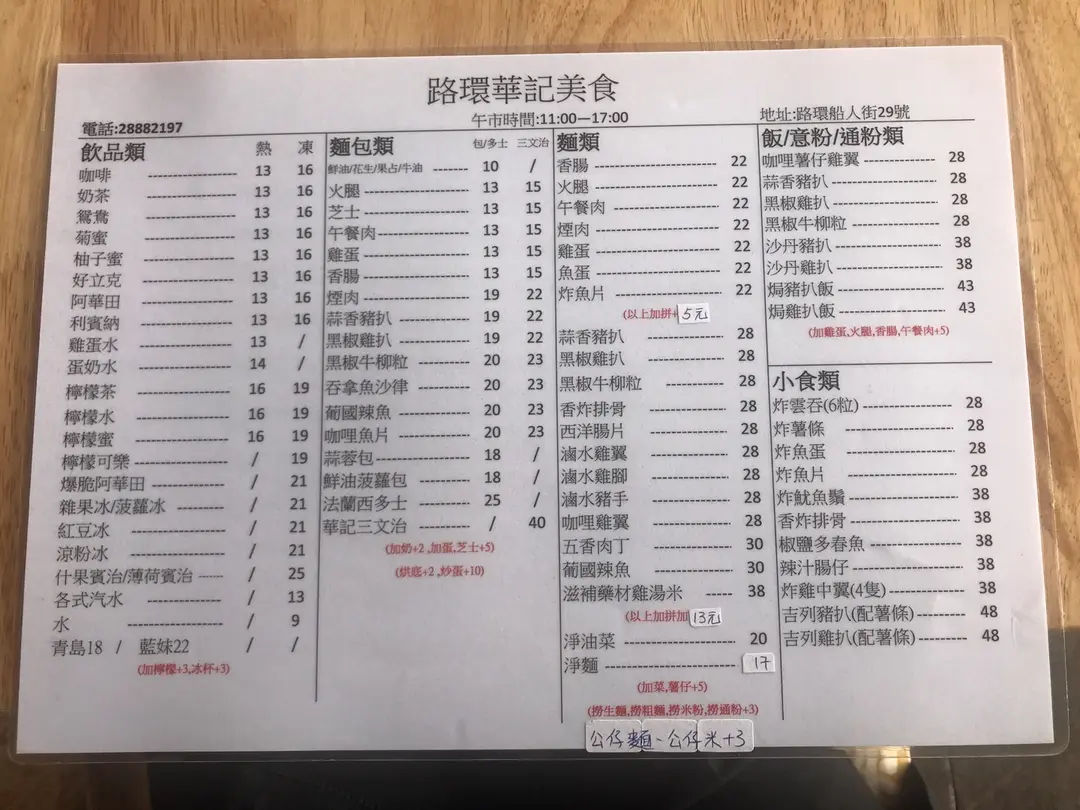 路環華記美食
電話:28882197
午市時間:11:00—17:00
地址:路環船人街29號
飲品類 熱 凍
咖啡 ---------------- 13 16
奶茶 ---------------- 13 16
鴛鴦 ---------------- 13 16
菊蜜 ---------------- 13 16
柚子蜜 ---------------- 13 16
好立克 ---------------- 13 16
阿華田 ---------------- 13 16
利賓納 ---------------- 13 16
雞蛋水 ---------------- 13 /
蛋奶水 ---------------- 14 /
檸檬茶 ---------------- 16 19
檸檬水 ---------------- 16 19
檸檬蜜 ---------------- 16 19
檸檬可樂 ---------------- / 19
爆脆阿華田 -------------- / 21
雜果冰/菠蘿冰 ---------- / 21
紅豆冰 ---------------- / 21
涼粉冰 ---------------- / 21
什果賓治/薄荷賓治 ----- / 25
各式汽水 ------------- / 13
水 ---------------- / 9
青島18 / 藍妹22 / /
(加檸檬+3,冰杯+3)
麵包類 包/多士 三文治
鮮油/花生/果占/牛油 ------- 10 /
火腿 ---------------- 13 15
芝士 ---------------- 13 15
午餐肉 ---------------- 13 15
雞蛋 ---------------- 13 15
香腸 ---------------- 13 15
煙肉 ---------------- 19 22
蒜香豬扒 ------------- 19 22
黑椒雞扒 ------------- 19 22
黑椒牛柳粒 ---------- 20 23
吞拿魚沙律 ---------- 20 23
葡國辣魚 ---------- 20 23
咖哩魚片 ---------- 20 23
蒜蓉包 ---------------- 18 /
鮮油菠蘿包 ---------- 18 /
法蘭西多士 ---------- 25 /
華記三文治 ---------- / 40
(加奶+2 ,加蛋,芝士+5)
(烘底+2 ,炒蛋+10)
麵類
香腸 ---------------- 22
火腿 ---------------- 22
午餐肉 ---------------- 22
煙肉 ---------------- 22
雞蛋 ---------------- 22
魚蛋 ---------------- 22
炸魚片 ---------------- 22
(以上加拼+5元
蒜香豬扒 -------------- 28
黑椒雞扒 -------------- 28
黑椒牛柳粒 -------------- 28
香炸排骨 -------------- 28
西洋腸片 -------------- 28
滷水雞翼 -------------- 28
滷水雞腳 -------------- 28
滷水豬手 -------------- 28
咖哩雞翼 -------------- 28
五香肉丁 -------------- 30
葡國辣魚 -------------- 30
滋補藥材雞湯米 ----- 38
(以上加拼加13元
淨油菜 ---------------- 20
淨麵 ---------------- 17
(加菜,薯仔+5)
(撈生麵,撈粗麵,撈米粉,撈通粉+3)
公仔麵、公仔米+3
飯/意粉/通粉類
咖哩薯仔雞翼 -------------- 28
蒜香豬扒 ---------------- 28
黑椒雞扒 ---------------- 28
黑椒牛柳粒 ---------------- 28
沙丹豬扒 ---------------- 38
沙丹雞扒 ---------------- 38
焗豬扒飯 ---------------- 43
焗雞扒飯 ---------------- 43
(加雞蛋,火腿,香腸,午餐肉+5)
小食類
炸雲吞(6粒) ---------------- 28
炸薯條 ---------------- 28
炸魚蛋 ---------------- 28
炸魚片 ---------------- 28
炸魷魚鬚 ---------------- 38
香炸排骨 ---------------- 38
椒鹽多春魚 ---------------- 38
辣汁腸仔 ---------------- 38
炸雞中翼(4隻) ------------- 38
吉列豬扒(配薯條) ---------- 48
吉列雞扒(配薯條) ---------- 48